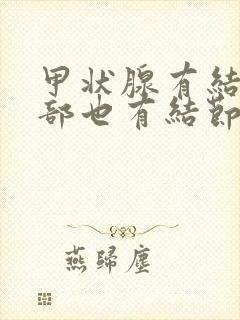 甲状腺有結
部也有結節
燕歸塵